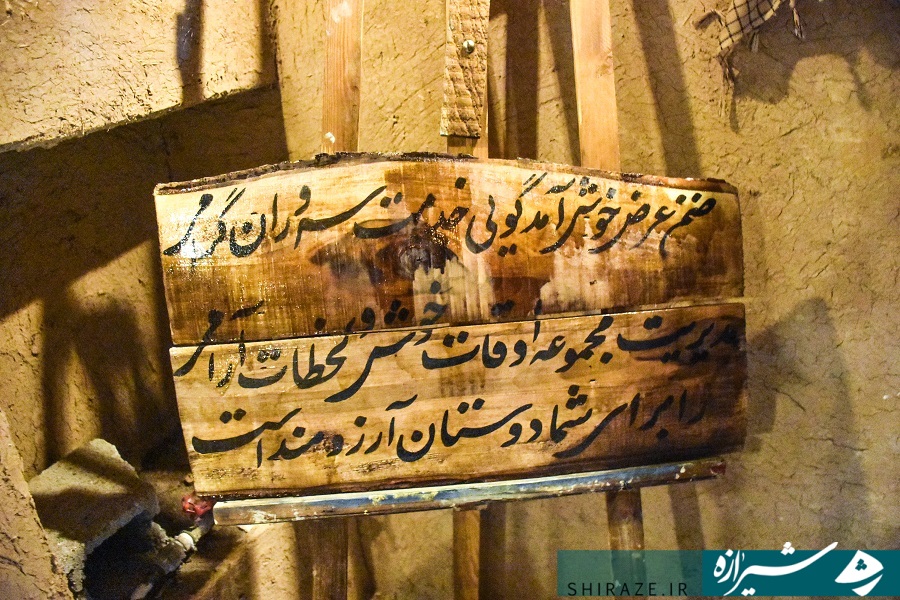 ضمن عرض خوش آمدگویی خدمت سروران گرامی
مدیریت مجموعه اوقات خوش و لحظات آرامی
را برای شما دوستان آرزومند است
شیرازه
SHIRAZE.IR